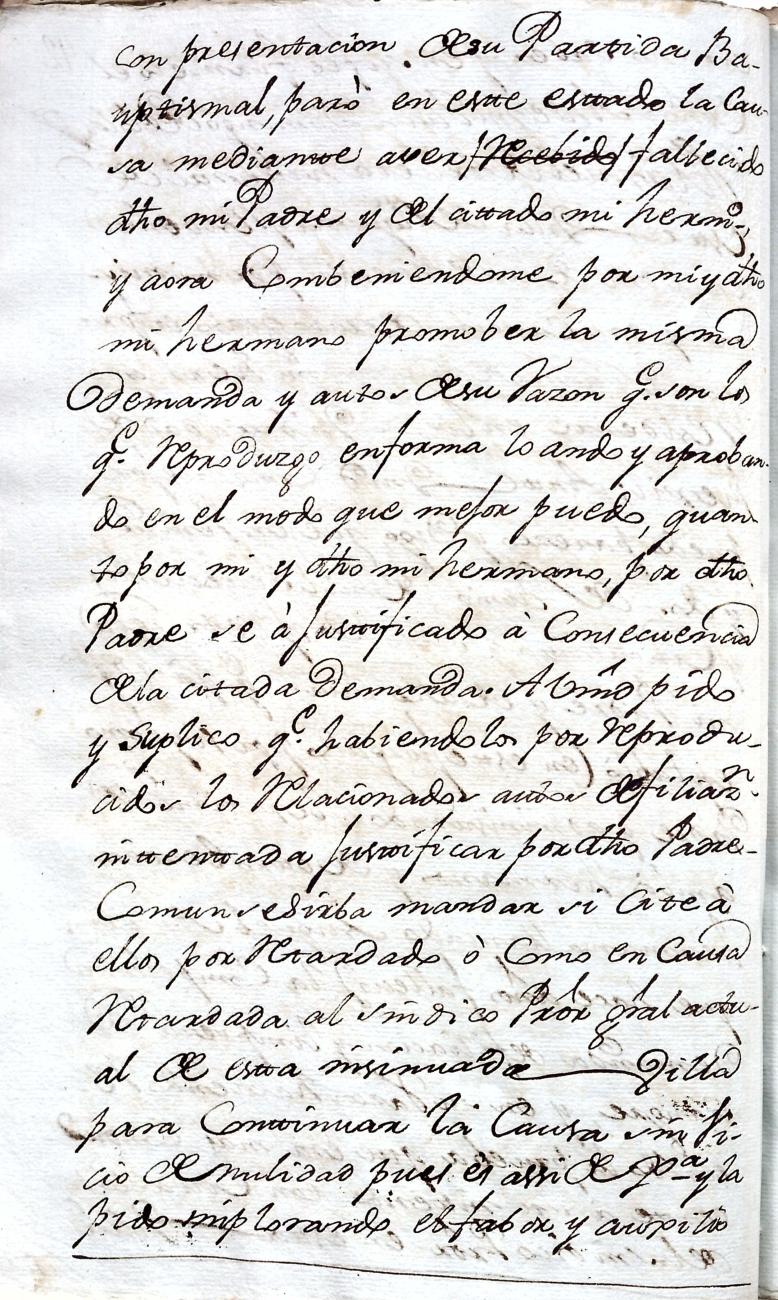 con presentacion de su Partida Ba-
uptismal, parò en estte esttado la Cau-
sa mediantte aver /Recebido/ fallecido
dho mi Padre y el cittado mi hermo,
y aora Combeniendome por mi y dho
mi hermano promober la misma
Demanda y autos de su Razon q.e son los
q.e Reproduzgo en forma loando y aproban-
do en el modo que mejor puedo, quan-
to por mi y dho mi hermano, por dho
Padre se à Justtificado à Consecuencia
de la citada Demanda. A Vmd pido
y Suplico q.e habiendolos por Reprodu-
cidos los Relacionados autos de filiaz.n
inttenttada Justtificar por dho Padre-
Comun se sirba mandar si Cite à
ellos por Rettardado ò Como en Causa
Rettardada al sindico Pror Gral actu-
al de estta insinuada Villa
para Conttinuar la Causa sin Vi-
cio de nulidad pues es assi de Jza y la
pido implorando el fabor y auxilio